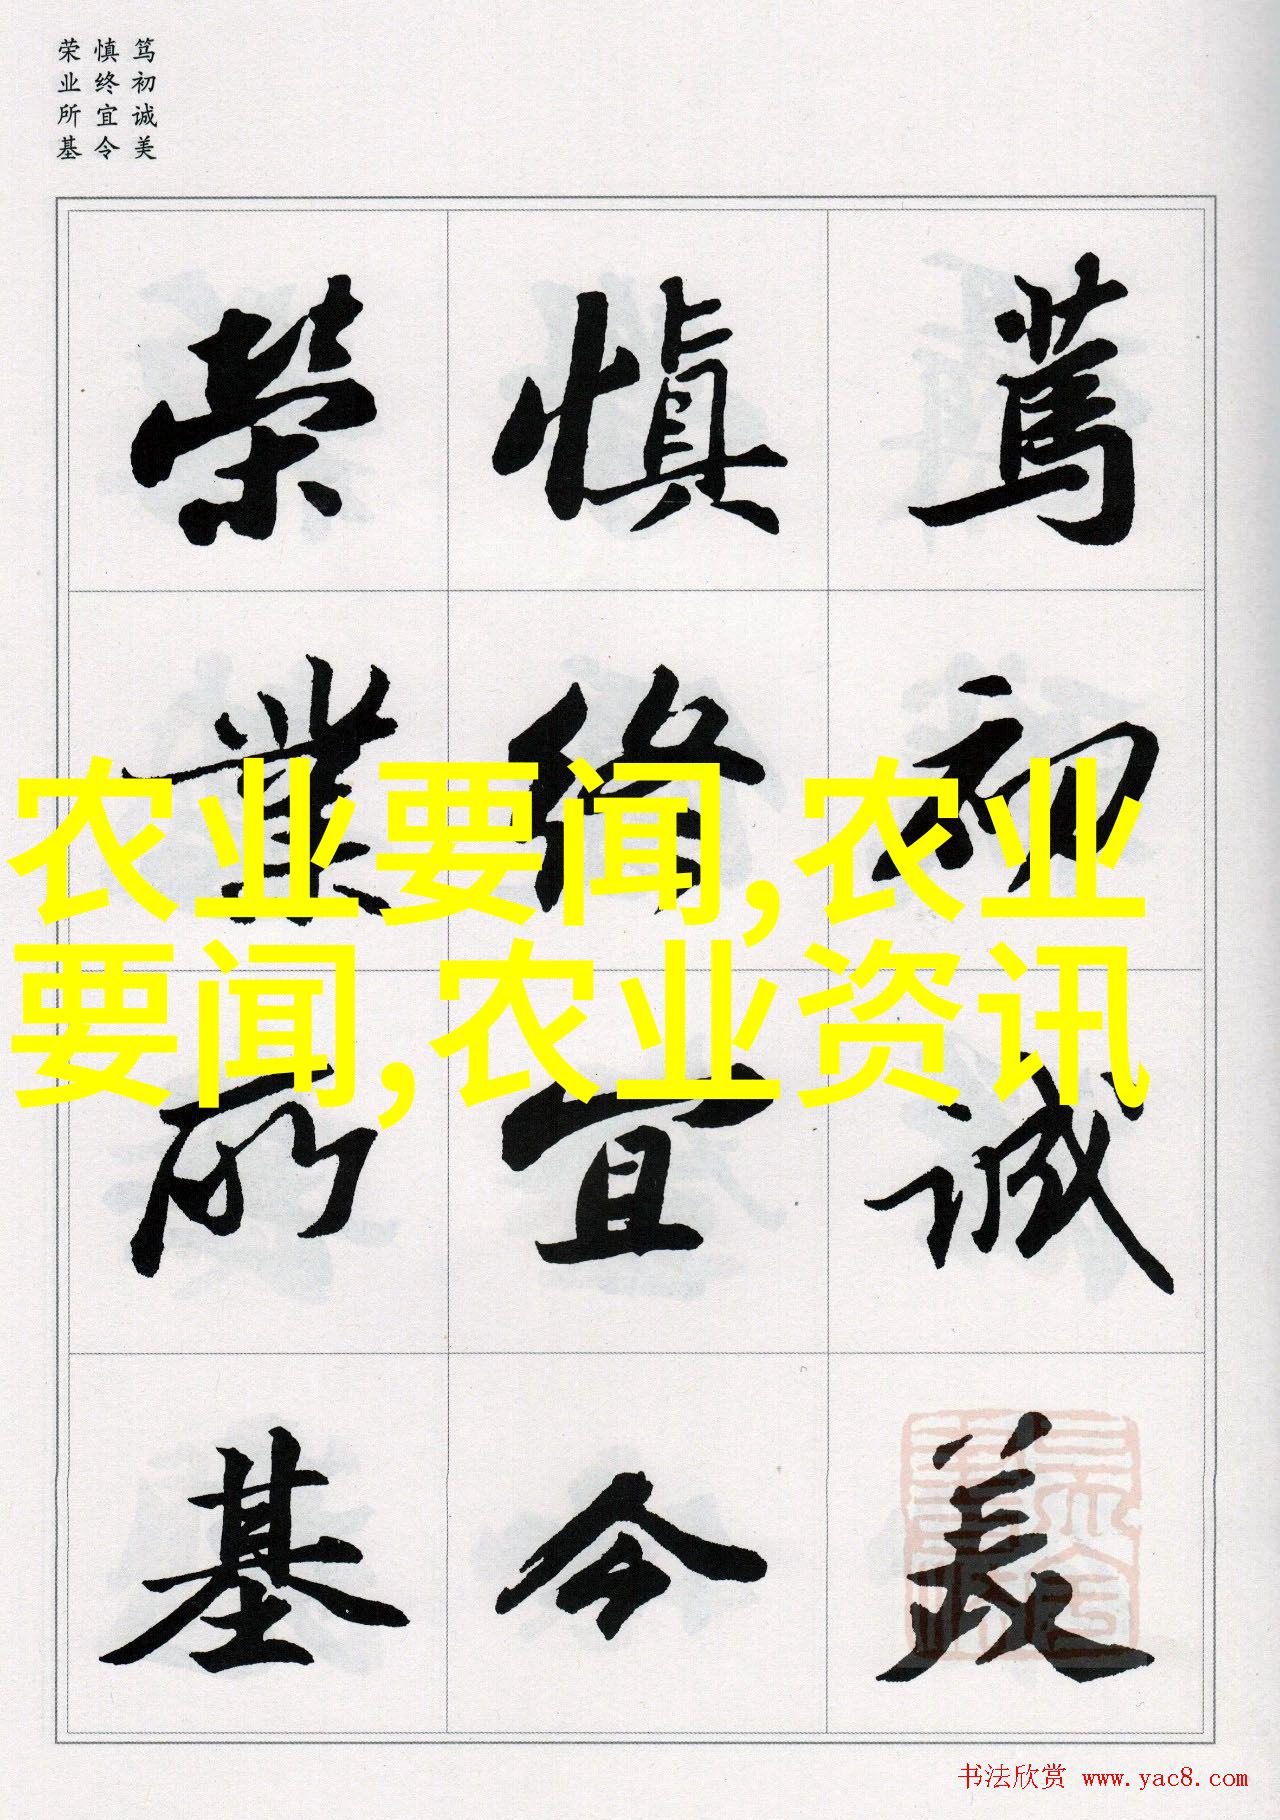 笃初诚美
慎终宜令
荣业所基
篤
初
誠
美
慎
終
宜
令
榮
業
所
基
农业要闻,农业
要闻,农业资讯
书法欣赏 www.yac8.com